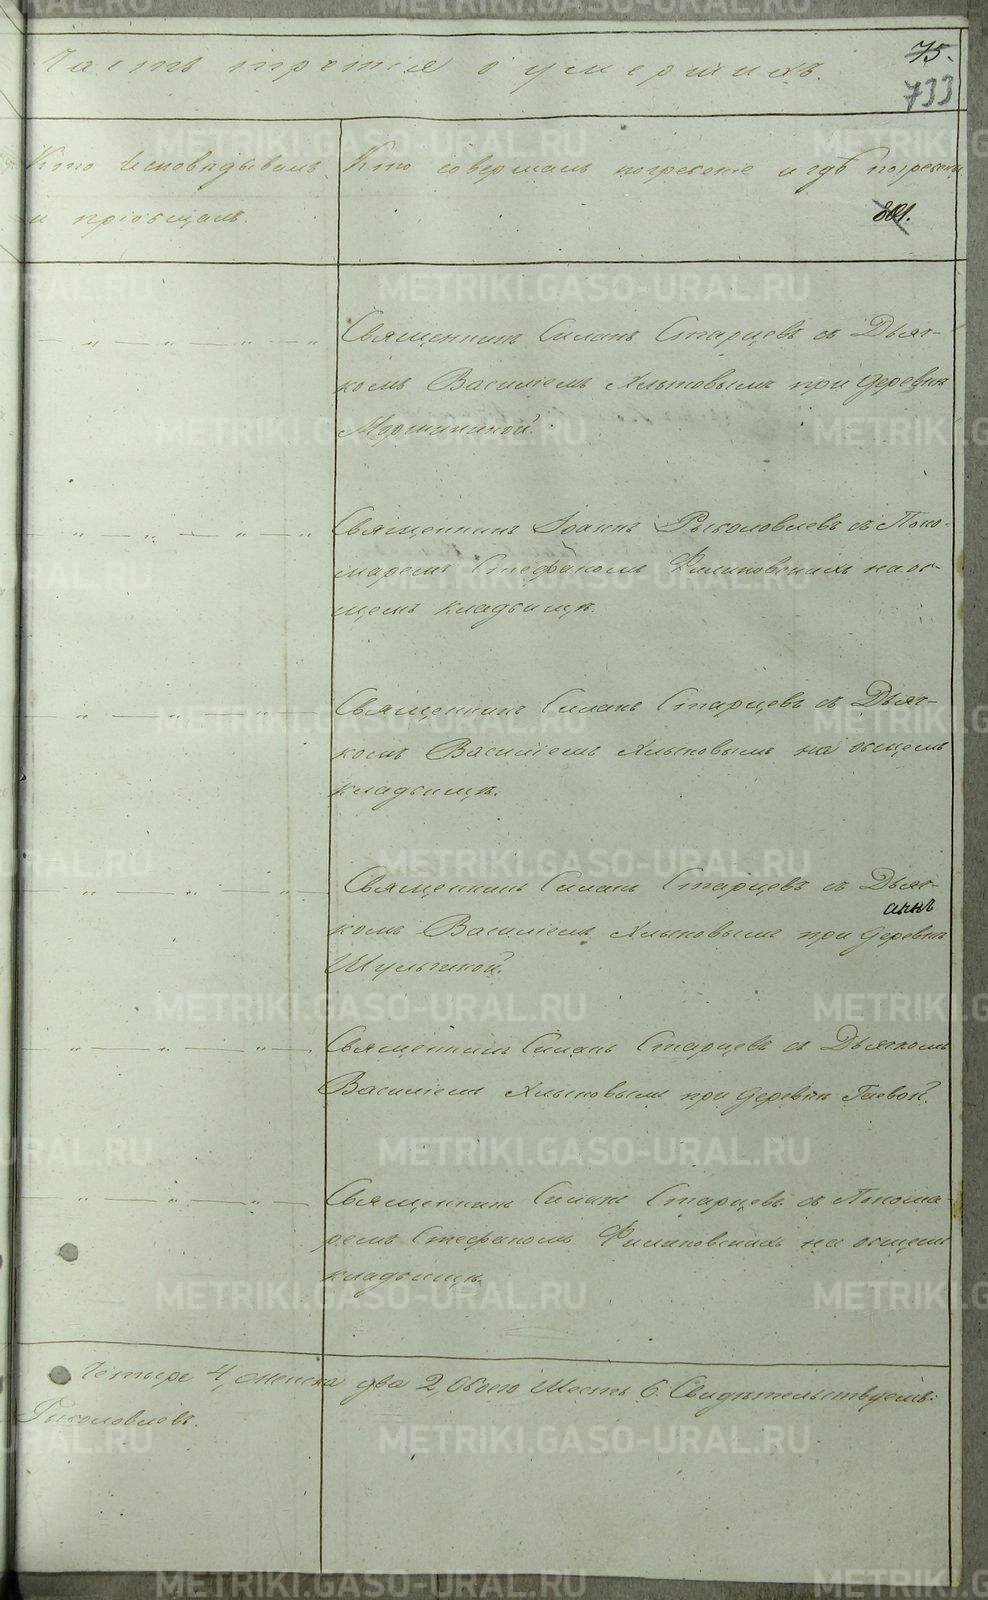 75.
Часть третія о умершихъ.
733
Кто исповѣдывалъ Кто совершалъ погребеніе и гдѣ погребены
и пріобщалъ.
801.
Священникъ Силанъ Старцевъ съ Дьяч-
комъ Василіемъ Хлыновымъ при деревнѣ
Священникъ Іоаннъ Рыболовлевъ съ Поно-
маремъ Стефаномъ Филиповскихъ на об-
щемъ кладбищѣ.
Священникъ Силанъ Старцевъ съ Дьяч-
комъ Василіемъ Хлыновымъ на общемъ
кладбищѣ.
Священникъ Силанъ Старцевъ съ Дьяч-
комъ Василіемъ Хлыновымъ при деревнѣ
Шульгиной.
Священникъ Силанъ Старцевъ съ Дьячкомъ
Василіемъ Хлыновымъ при деревнѣ Гаевой.
Священникъ Силанъ Старцевъ съ Понома-
ремъ Стефаномъ Филиповскихъ на общемъ
кладбищѣ.
Четыре 4, женска два 2, обоего Шесть 6. Свидѣтельствуемъ:
Рыболовлевъ.
METRIKI.GASO-URAL.RU